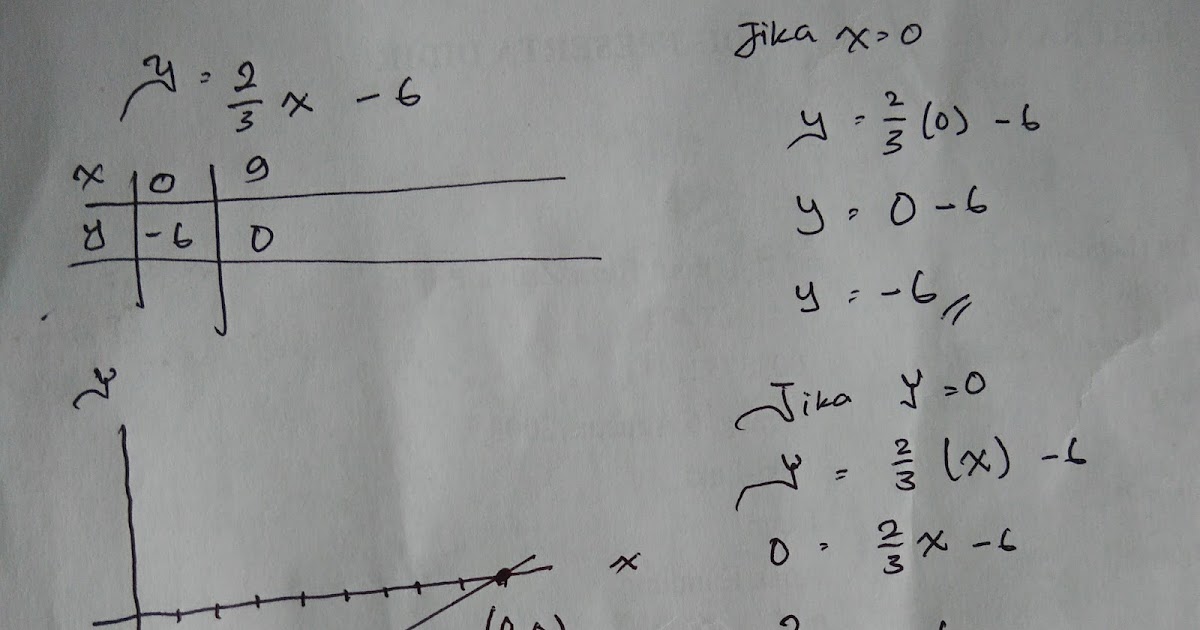 y = 2/3 x - 6
x 0 9
y -6 0
y
x
Jika x = 0
y = 2/3 (0) - 6
y = 0 - 6
y = -6 //
Jika y = 0
y = 2/3 (x) - 6
0 = 2/3 x - 6